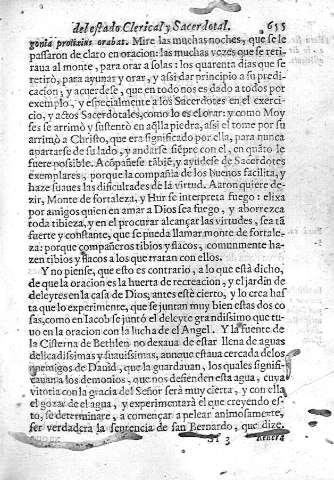 del estado Clerical y Sacerdotal. 655
gonia prolixius orabat. Mire las muchas noches, que se le
passaron de claro en oracion: las muchas vezes que se reti-
raua al monte, para orar a solas: los quarenta dias que se
retirò, para ayunar y orar, y assi dar principio a su predi-
cacion; y acuerdese, que en todo nos es dado a todos por
exemplo, y especialmente a los Sacerdotes en el exerci-
cio, y actos Sacerdotales, como lo es el orar: y como Moy
ses se arrimò y sustentò en aq̃lla piedra, assi el tome por su
arrimo a Christo, que era significado por ella, para nunca
apartarse de su lado, y andarse siẽpre con el, en quãto le
fuere possible. Acõpañese tãbiẽ, y ayudese de Sacerdotes
exemplares, porque la compañia de los buenos facilita, y
haze suaues las dificultades de la virtud. Aaron quiere de-
zir, Monte de fortaleza, y Hur se interpreta fuego: elixa
por amigos quien en amar a Dios sea fuego, y aborrezca
toda tibieza, y en el procurar alcançar las virtudes, sea tã
fuerte y constante, que se pueda llamar monte de fortale-
za: porque compañeros tibios y flacos, comunmente ha-
zen tibios y flacos a los que tratan con ellos.
Y no piense, que esto es contrario, a lo que està dicho,
de que la oracion es la huerta de recreacion, y el jardin de
deleytes en la casa de Dios, antes estè cierto, y lo crea has
ta que lo experimente, que se juntan muy bien estas dos co
sas, como en Iacob se juntò el deleyte grandissimo que tu-
uo en la oracion con la lucha de el Angel. Y la fuente de
la Cisterna de Bethlen no dexaua de estar llena de aguas
delicadissimas y suauissimas, aunque estaua cercada de los
enemigos de Dauid, que la guardauan, los quales signifi-
cauan a los demonios, que nos defienden esta agua, cuya
vitoria con la gracia del Señor serà muy cierta, y con ella
el gozar de el agua, y experimentarà el que creyendo es-
to, se determinare, a començar a pelear animosamente,
ser verdadera la sentencia de san Bernardo, que dize.
3 Renera